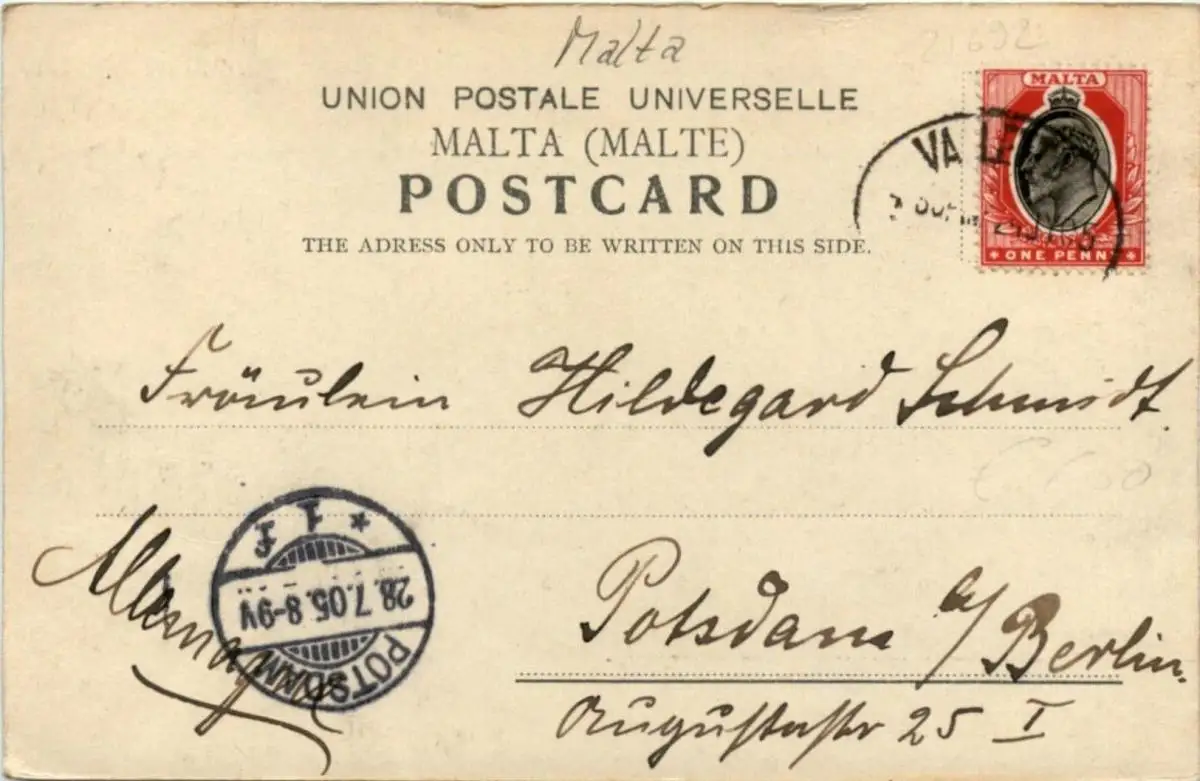 Malta
21692
UNION POSTALE UNIVERSELLE
MALTA (MALTE)
POSTCARD
THE ADRESS ONLY TO BE WRITTEN ON THIS SIDE.
MALTA
ONE PENNY
VALET
Fräulein Hildegard Schmidt
Allemagne
* 1 f
28.7.05.8-9V
POTSDAM
Potsdam b/Berlin.
Augustastr 25 I